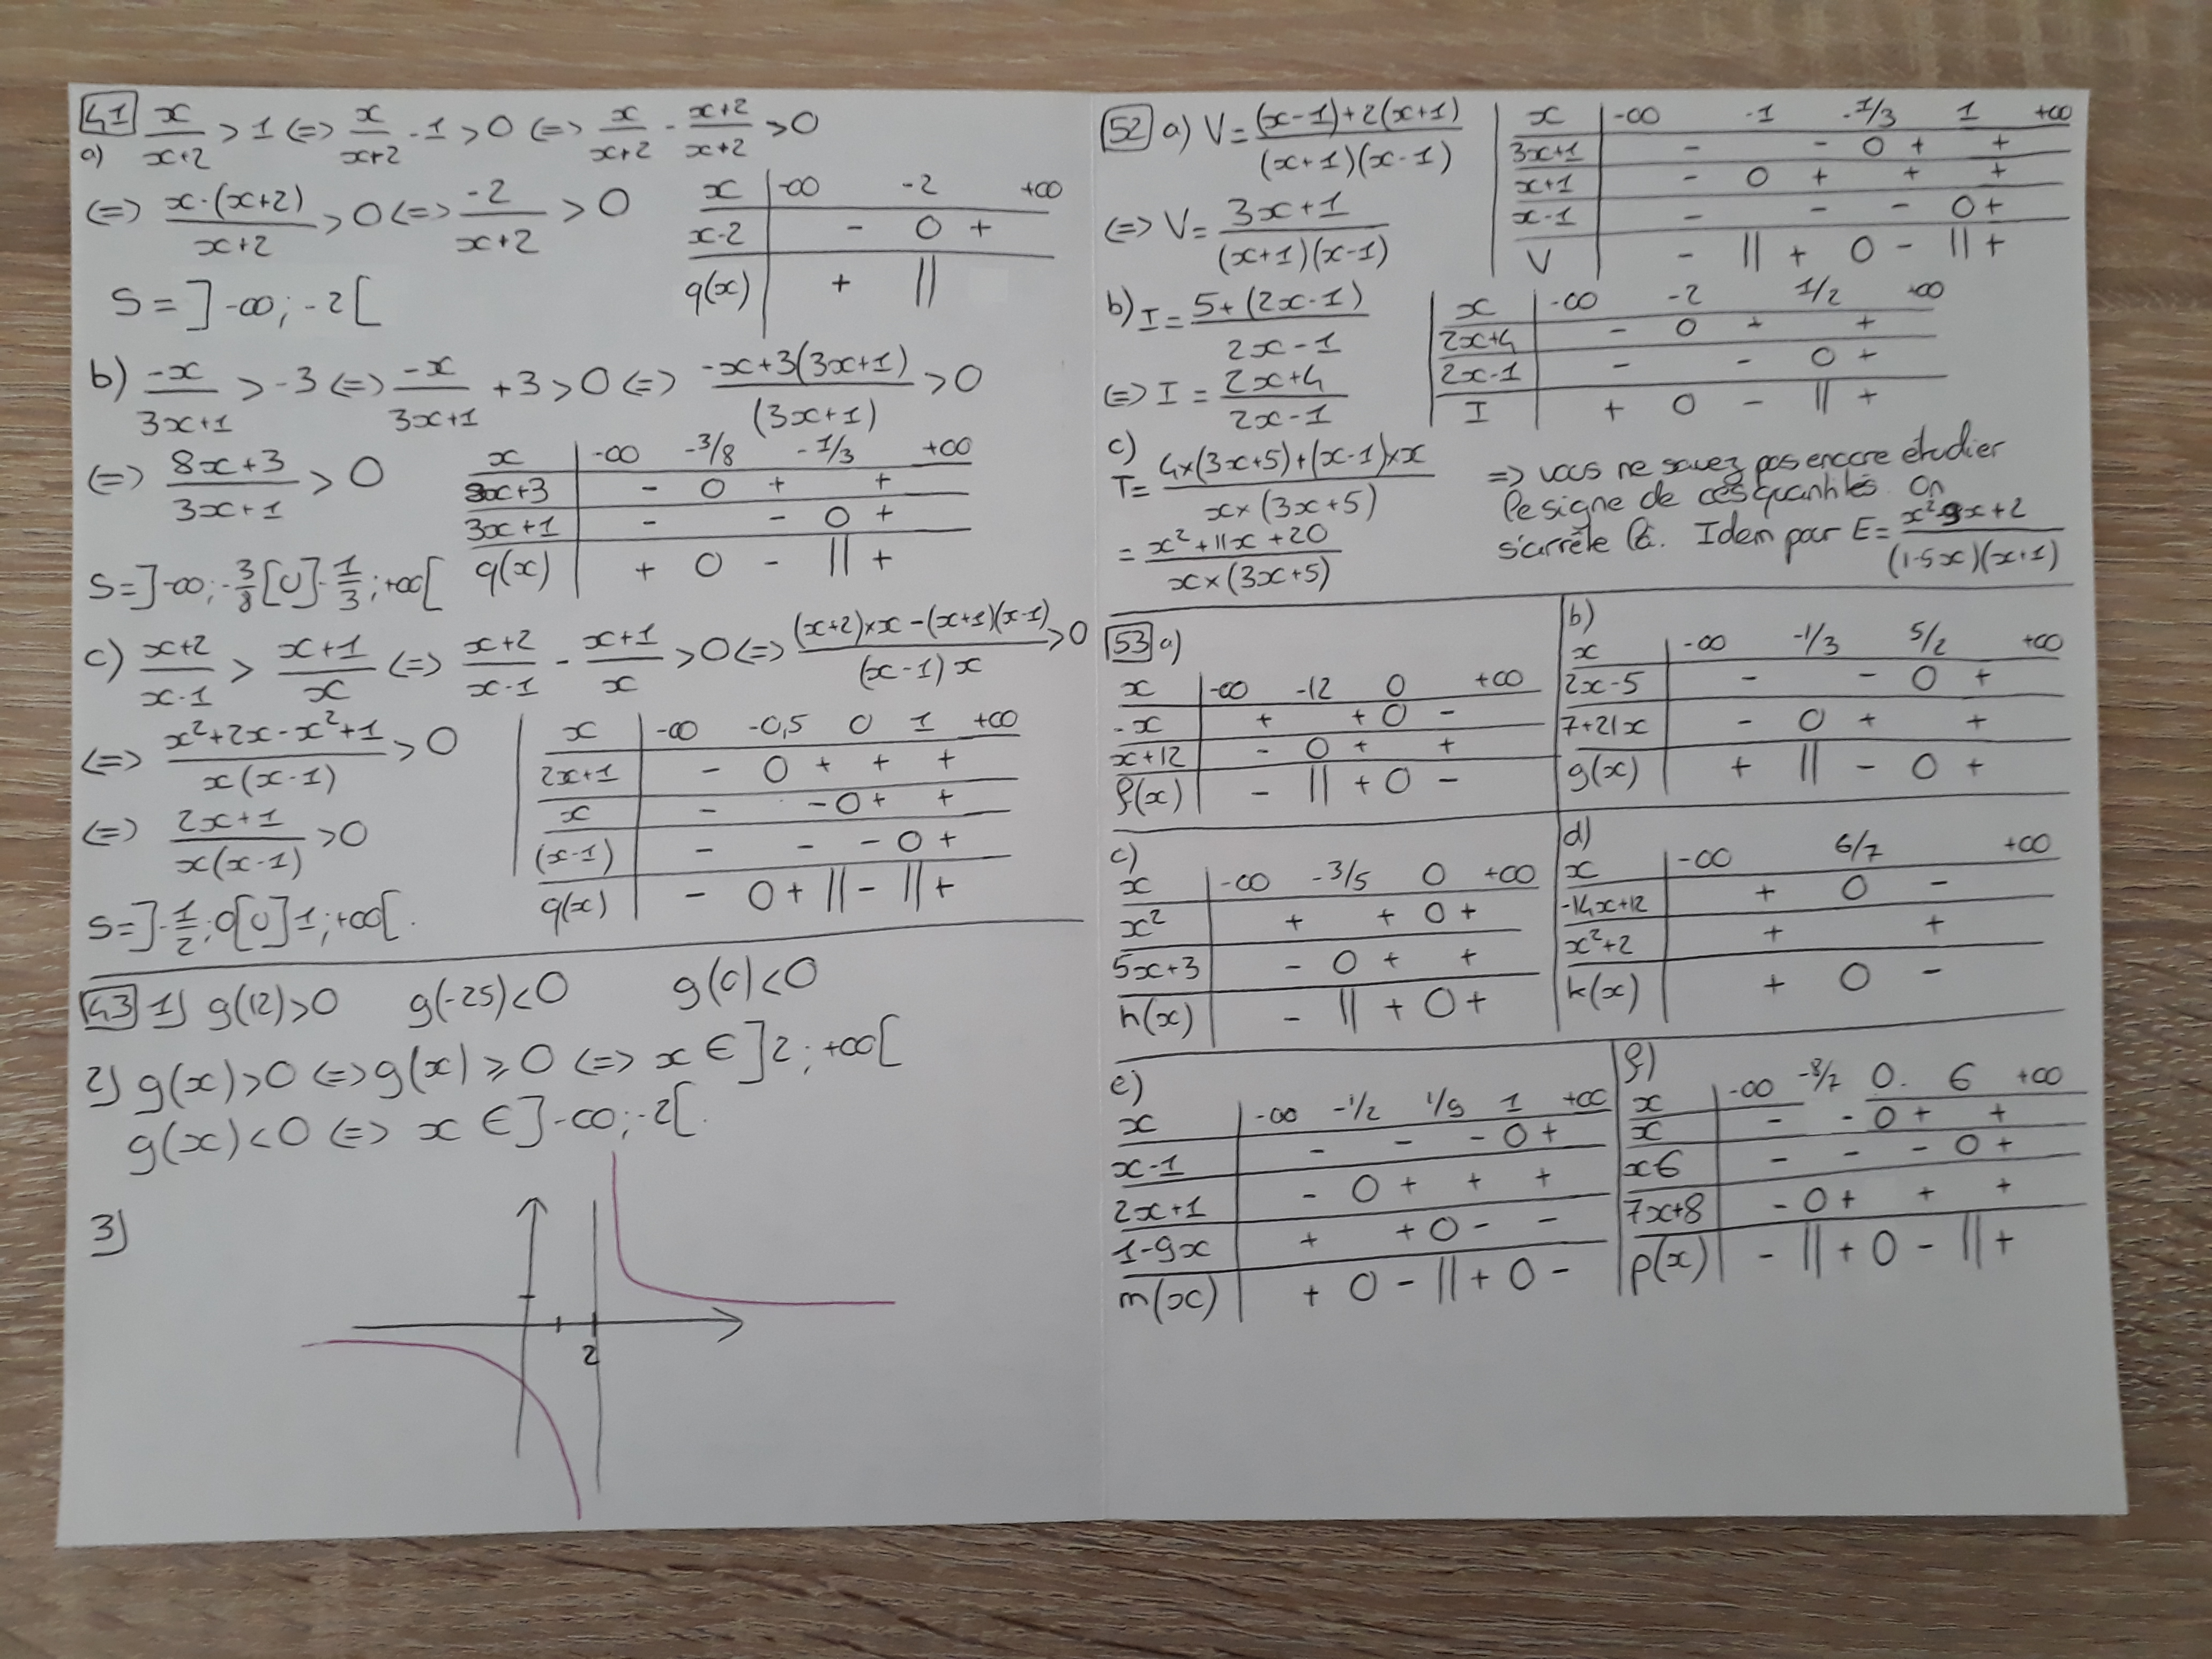 41 x/(x+2) > 1 <=> x/(x+2) - 1 > 0 <=> x/(x+2) - (x+2)/(x+2) > 0
a)
<=> (x-(x+2))/(x+2) > 0 <=> -2/(x+2) > 0
x | -∞ -2 +∞
x-2 | - 0 +
q(x) | + ||
S = ]-∞; -2[
b) -x/(3x+1) > -3 <=> -x/(3x+1) + 3 > 0 <=> (-x+3(3x+1))/(3x+1) > 0
<=> (8x+3)/(3x+1) > 0
x | -∞ -3/8 -1/3 +∞
8x+3 | - 0 + +
3x+1 | - - 0 +
q(x) | + 0 - || +
S=]-∞; -3/8[∪]-1/3; +∞[
c) (x+2)/(x-1) > (x+1)/x <=> (x+2)/(x-1) - (x+1)/x > 0 <=> ((x+2)×x-(x+1)(x-1))/((x-1)x) > 0
<=> (x²+2x-x²+1)/(x(x-1)) > 0
<=> (2x+1)/(x(x-1)) > 0
x | -∞ -0,5 0 1 +∞
2x+1 | - 0 + + +
x | - - 0 + +
(x-1) | - - - 0 +
q(x) | - 0 + || - || +
S=]-1/2; 0[∪]1; +∞[.
43 1) g(12)>0 g(-25)<0 g(0)<0
2) g(x)>0 <=> g(x) ≥ 0 <=> x ∈ ]2; +∞[
g(x)<0 <=> x ∈ ]-∞; -2[.
3)
2
52 a) V = ((x-1)+2(x+1))/((x+1)(x-1))
<=> V = (3x+1)/((x+1)(x-1))
x | -∞ -1 -1/3 1 +∞
3x+1 | - - 0 + +
x+1 | - 0 + + +
x-1 | - - - 0 +
V | - || + 0 - || +
b) I = (5+(2x-1))/(2x-1)
<=> I = (2x+4)/(2x-1)
x | -∞ -2 1/2 +∞
2x+4 | - 0 + +
2x-1 | - - 0 +
I | + 0 - || +
c)
T = (4×(3x+5)+(x-1)×x)/(x×(3x+5))
= (x²+11x+20)/(x×(3x+5))
=> vous ne savez pas encore étudier
le signe de ces quantités. On
s'arrête là. Idem pour E = (x²-9x+2)/((1-5x)(x+1))
53 a)
x | -∞ -12 0 +∞
-x | + + 0 -
x+12 | - 0 + +
f(x) | - || + 0 -
b)
x | -∞ -1/3 5/2 +∞
2x-5 | - - 0 +
7+21x | - 0 + +
g(x) | + || - 0 +
c)
x | -∞ -3/5 0 +∞
x² | + + 0 +
5x+3 | - 0 + +
h(x) | - || + 0 +
d)
x | -∞ 6/7 +∞
-14x+12 | + 0 -
x²+2 | + +
k(x) | + 0 -
e)
x | -∞ -1/2 1/9 1 +∞
x-1 | - - - 0 +
2x+1 | - 0 + + +
1-9x | + + 0 - -
m(x) | + 0 - || + 0 -
f)
x | -∞ -8/7 0. 6 +∞
x | - - 0 + +
x-6 | - - - 0 +
7x+8 | - 0 + + +
p(x) | - || + 0 - || +